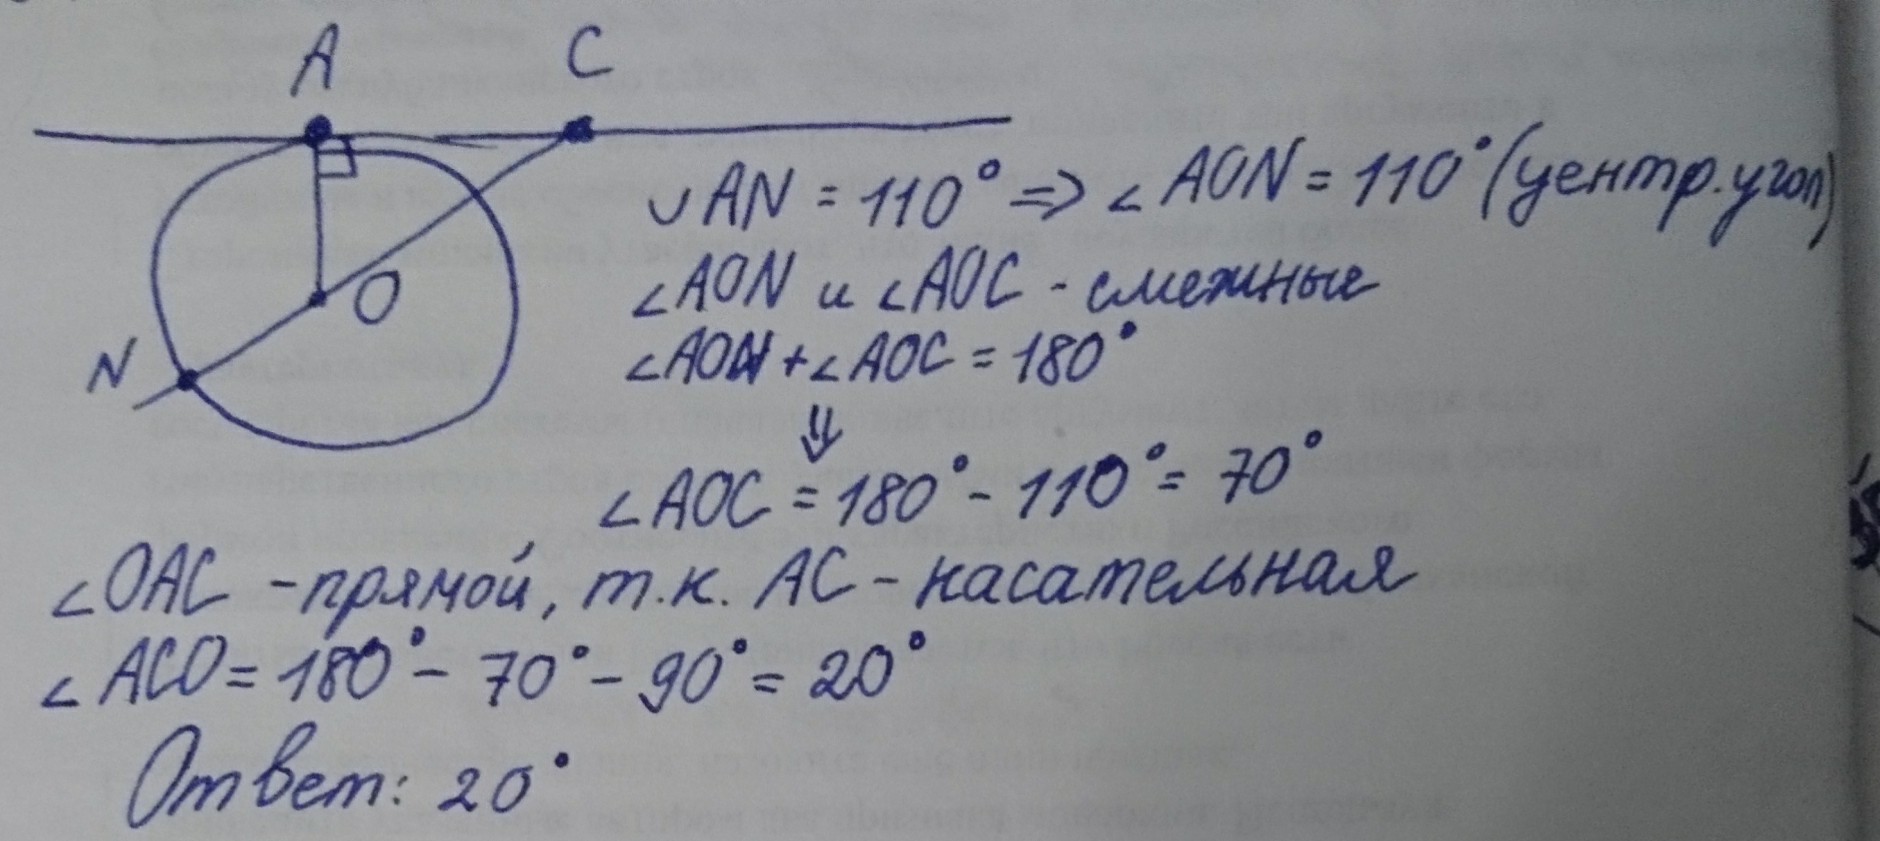 A C
O
N
∪AN = 110° => ∠AON = 110° (центр. угол)
∠AON и ∠AOC - смежные
∠AON + ∠AOC = 180°
⇓
∠AOC = 180° - 110° = 70°
∠OAC - прямой, т.к. AC - касательная
∠ACO = 180° - 70° - 90° = 20°
Ответ: 20°